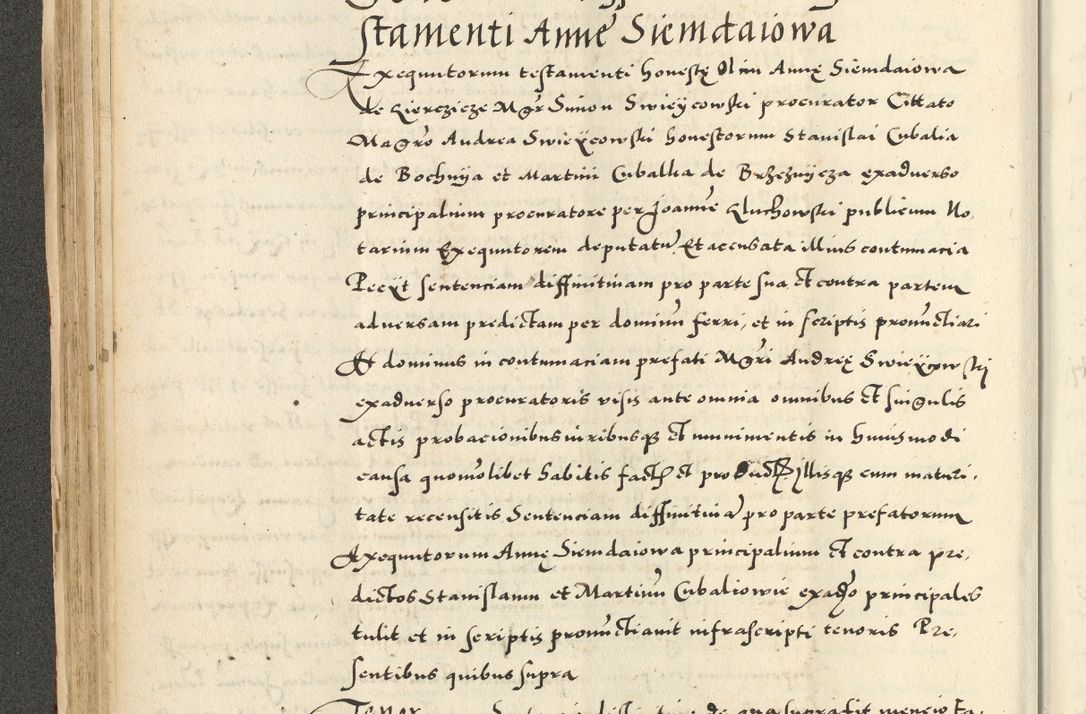 stamenti Annę Siemdaiowa
Exequutorum testamenti honestę Olim Annę Siemdaiowa
de Lierczicze Mgr Simon Swieÿcowski procurator Cittato
Magro Andrea Swieÿcowski honestorum Stanislai Cubalia
de Bochnÿa et Martini Cubalka de Brzeznÿcza exaduerso
principalium procuratore per Joanne Kluchowski publicum No,
tarium Exequutorem deputatu Et accusata illius contumacia
Pecÿt sentenciam diffinitiuam pro parte sua et contra partem
aduersam predictam per dominu ferri, et in scriptis pronunctiari
Et dominus in contumaciam prefati Mgri Andreę Swieÿcowskj
exaduerso procuratoris visis ante omnia omnibus et singulis
actis probacionibus iuribusq3 et munimentis in huiusmodi
causa quomolibet habitis fact et product illisq3 cum maturi,
tate recensitis Sentenciam diffinitiua pro parte prefatorum
Exequutorum Annę Siemdaiowa principalium et contra pre,
dictos Stanislaum et Martinu Cubaliowie exadso principales
tulit et in scriptis pronunctiauit infrascripti tenoris Pre,
sentibus quibus supra
Tenor de qua supra fit mencio ta,